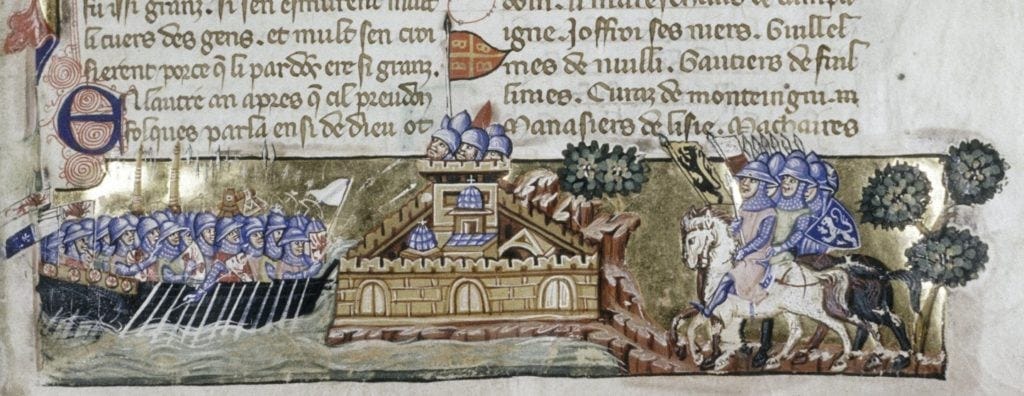 fu issi granz. si sen esmurent mult
li cuers des gens. et mult sen croi
sierent porce q̃ li pardõr ere si granz.
El lautre an apres q̃ cil preudon
folques parla ensi de dieu ot
doin. li mareschaus de campa
igne. Joffroi ses niers. Guillel
mes de nuilli. Gautiers de fuil
limes. Curaz de monteingni. m
Manasiers de lisle. Machaires